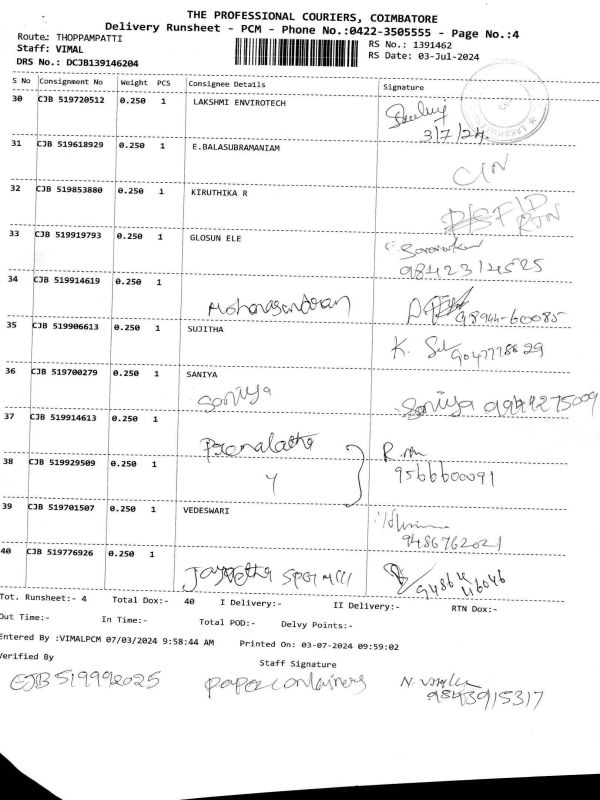 THE PROFESSIONAL COURIERS, COIMBATORE
Delivery Runsheet - PCM - Phone No.:0422-3505555 - Page No.:4
Route: THOPPAMPATTI
RS No.: 1391462
Staff: VIMAL
RS Date: 03-Jul-2024
DRS No.: DCJB139146204
S No Consignment No Weight PCS Consignee Details Signature
30 CJB 519720512 0.250 1 LAKSHMI ENVIROTECH
3/7/24.
31 CJB 519618929 0.250 1 E.BALASUBRAMANIAM
32 CJB 519853880 0.250 1 KIRUTHIKA R
RTN
33 CJB 519919793 0.250 1 GLOSUN ELE
9842314525
34 CJB 519914619 0.250 1
98944-60085
35 CJB 519906613 0.250 1 SUJITHA
K.
9047778829
36 CJB 519700279 0.250 1 SANIYA
Saniya Saniya
37 CJB 519914613 0.250 1
Premalatha
38 CJB 519929509 0.250 1
9566600091
39 CJB 519701507 0.250 1 VEDESWARI
9486762021
40 CJB 519776926 0.250 1
Tot. Runsheet:- 4 Total Dox:- 40 I Delivery:- II Delivery:- RTN Dox:-
Out Time:- In Time:- Total POD:- Delvy Points:-
Entered By :VIMALPCM 07/03/2024 9:58:44 AM Printed On: 03-07-2024 09:59:02
Verified By Staff Signature
CJB 519992025 paper containers
9843915317